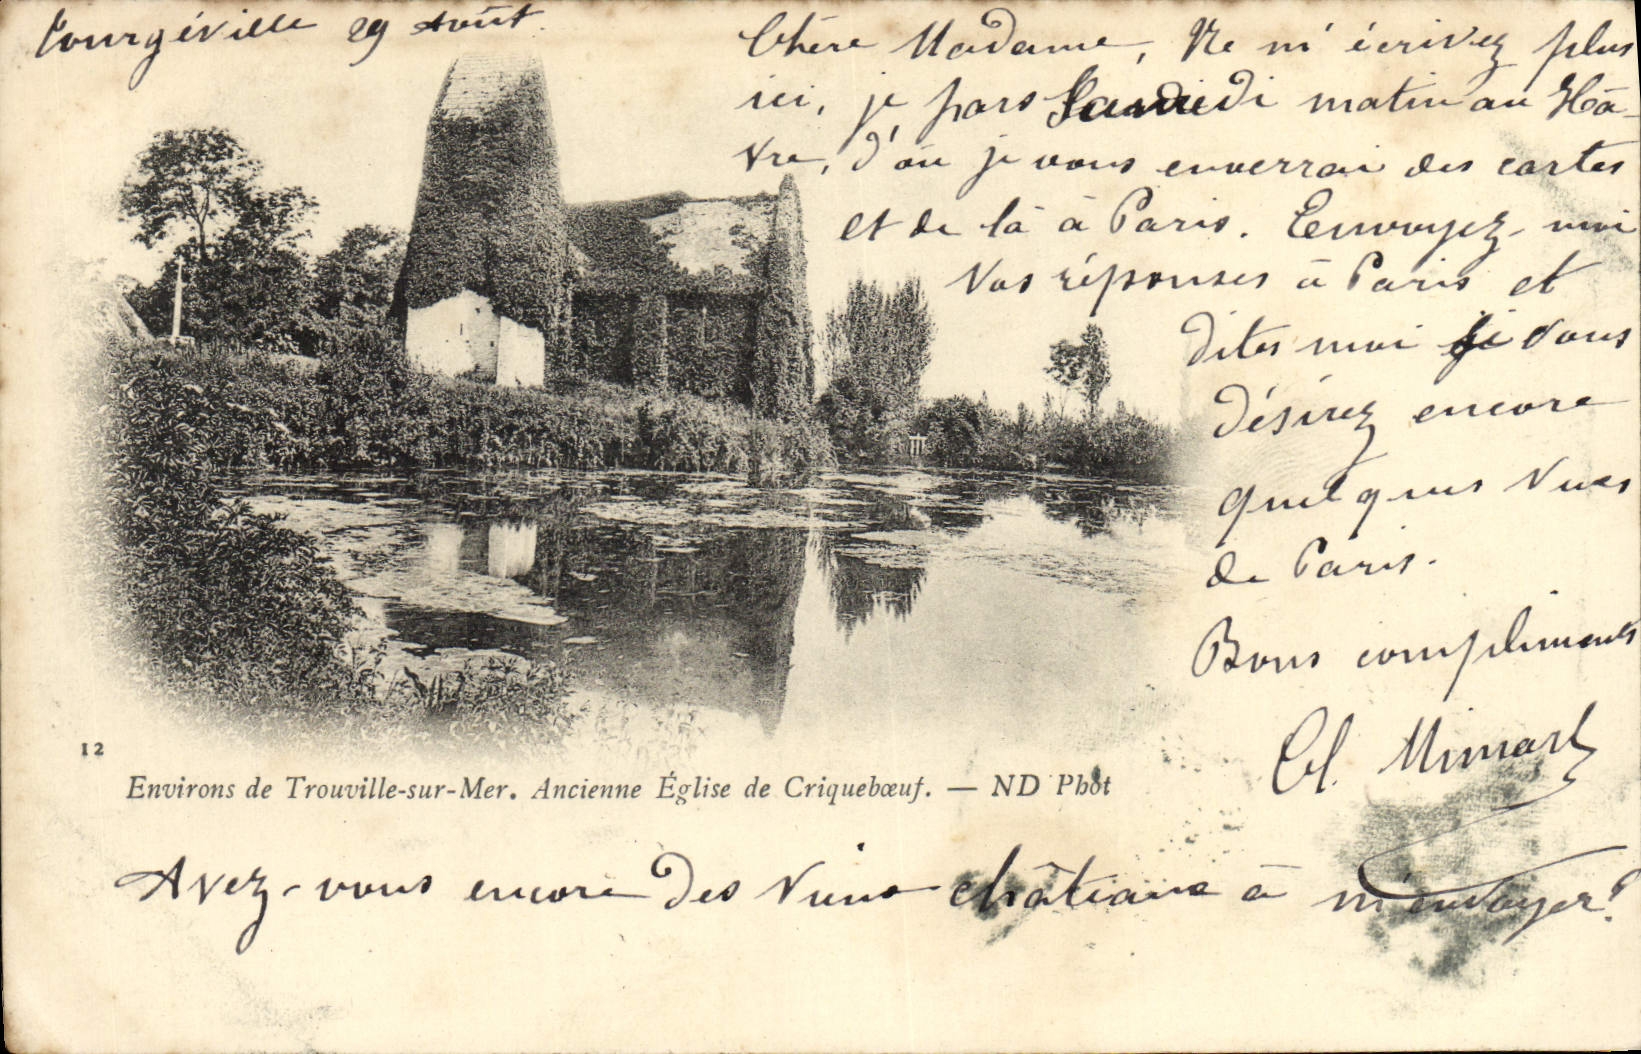 Tourgéville 29 Août.
Chère Madame, Ne m'écrivez plus
ici, je pars Samedi matin au Hâ-
vre, d'où je vous enverrai des cartes
et de là à Paris. Envoyez-moi
vos réponses à Paris et
dites moi si vous
désirez encore
quelques vues
de Paris.
Bons compliments
Ch. Mimard
12
Environs de Trouville-sur-Mer. Ancienne Église de Criquebœuf. — ND Phot
Avez-vous encore des vieux châteaux à m'envoyer?